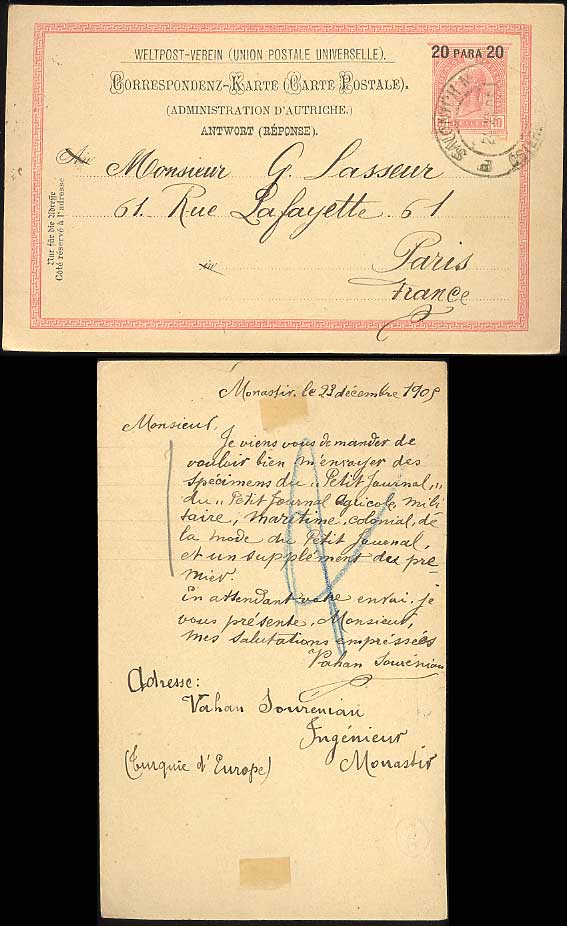 20 PARA 20
WELTPOST-VEREIN (UNION POSTALE UNIVERSELLE).
CORRESPONDENZ-KARTE (CARTE POSTALE).
(ADMINISTRATION D'AUTRICHE.)
ANTWORT (RÉPONSE).
An Monsieur G. Lasseur
61. Rue Lafayette. 61
in Paris
France
Nur für die Adresse
Côté réservé à l'adresse
Monastir, le 23 décembre 1905
Monsieur,
Je viens vous demander de
vouloir bien m'envoyer des
spécimens du „Petit Journal„
du „Petit Journal Agricole, mili-
taire, maritime, colonial, de
la mode du Petit Journal,
et un supplément du pre-
mier.
En attendant votre envoi, je
vous présente, Monsieur,
mes salutations empressées
Vahan Sourénian
Adresse:
Vahan Sourenian
Ingénieur
(Turquie d'Europe) Monastir